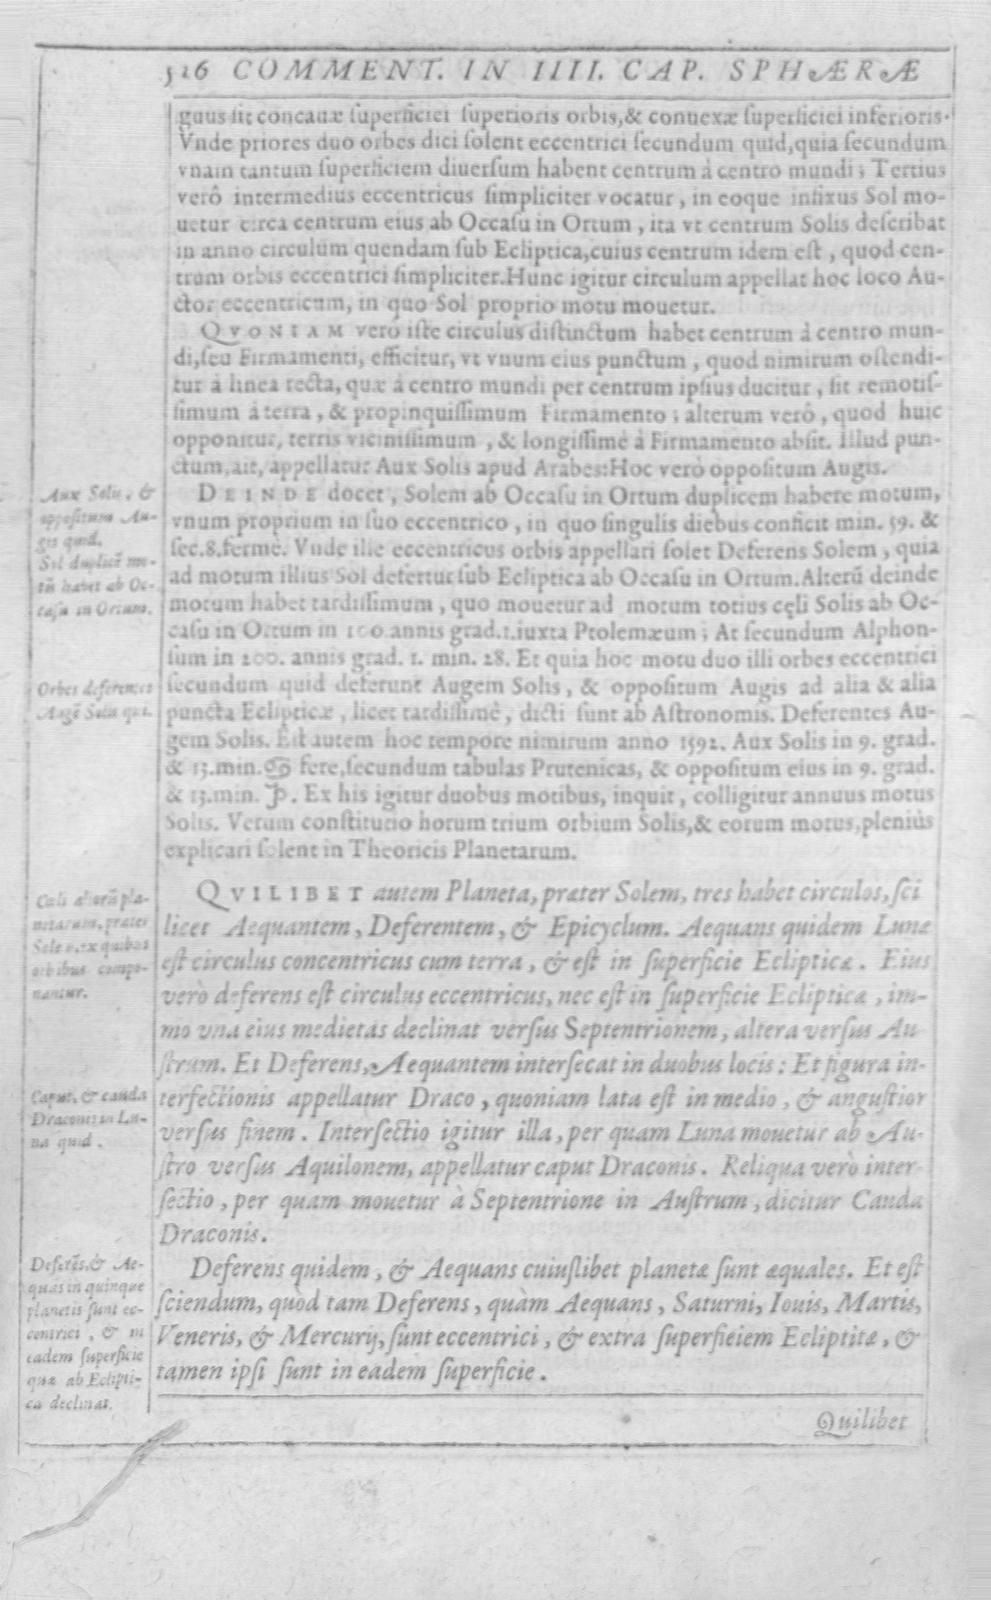 526 COMMENT. IN IIII. CAP. SPHÆRÆ
guus sit concauæ superficiei superioris orbis,& conuexæ superficiei inferioris.
Vnde priores duo orbes dici solent eccentrici secundum quid,quia secundum
vnam tantum superficiem diuersum habent centrum á centro mundi; Tertius
verô intermedius eccentricus simpliciter vocatur, in eoque infixus Sol mo-
uetur circa centrum eius ab Occasu in Ortum, ita vt centrum Solis describat
in anno circulum quendam sub Ecliptica,cuius centrum idem est, quod cen-
trum orbis eccentrici simpliciter.Hunc igitur circulum appellat hoc loco Au-
ctor eccentricum, in quo Sol proprio motu mouetur.
QVONIAM verò iste circulus distinctum habet centrum á centro mun-
di,seu Firmamenti, efficitur, vt vnum eius punctum, quod nimirum ostendi-
tur á linea recta, quæ á centro mundi per centrum ipsius ducitur, sit remotis-
simum á terra, & propinquissimum Firmamento; alterum verô, quod huic
opponitur, terris vicinissimum, & longissimè á Firmamento absit. Illud pun-
ctum,ait, appellatur Aux Solis apud Arabes:Hoc verò oppositum Augis.
Aux Solis, &
oppositum Au-
gis quid.
Sol duplicẽ mo-
tũ habet ab Oc-
casu in Ortum.
DEINDE docet, Solem ab Occasu in Ortum duplicem habere motum,
vnum proprium in suo eccentrico, in quo singulis diebus conficit min. 59. &
sec.8.fermè. Vnde ille eccentricus orbis appellari solet Deferens Solem, quia
ad motum illius Sol defertur sub Ecliptica ab Occasu in Ortum.Alterũ deinde
motum habet tardissimum, quo mouetur ad motum totius cęli Solis ab Oc-
casu in Ortum in 100 annis grad.1.iuxta Ptolemæum; At secundum Alphon-
sum in 200. annis grad. 1. min. 28. Et quia hoc motu duo illi orbes eccentrici
Orbes deferentes
Augẽ Solis qui.
secundum quid deferunt Augem Solis, & oppositum Augis ad alia & alia
puncta Eclipticæ, licet tardissimè, dicti sunt ab Astronomis. Deferentes Au-
gem Solis. Est autem hoc tempore nimirum anno 1592. Aux Solis in 9. grad.
& 13.min.♋ fere,secundum tabulas Prutenicas, & oppositum eius in 9. grad.
& 13.min. ♑. Ex his igitur duobus motibus, inquit, colligitur annuus motus
Solis. Verum constitutio horum trium orbium Solis,& eorum motus,pleniùs
explicari solent in Theoricis Planetarum.
Cæli aliorũ pla-
netarum, præter
Solem,ex quibus
orbibus compo-
nantur.
QVILIBET autem Planeta, præter Solem, tres habet circulos, sci
licet Aequantem, Deferentem, & Epicyclum. Aequans quidem Lunæ
est circulus concentricus cum terra, & est in superficie Eclipticæ. Eius
verò deferens est circulus eccentricus, nec est in superficie Eclipticæ, im-
mo vna eius medietas declinat versus Septentrionem, altera versus Au-
strum. Et Deferens, Aequantem intersecat in duobus locis: Et figura in-
Caput, & cauda
Draconis in Lu-
na quid.
tersectionis appellatur Draco, quoniam lata est in medio, & angustior
versus finem. Intersectio igitur illa, per quam Luna mouetur ab Au-
stro versus Aquilonem, appellatur caput Draconis. Reliqua verò inter-
sectio, per quam mouetur à Septentrione in Austrum, dicitur Cauda
Draconis.
Deferẽs,& Ae-
quãs in quinque
planetis sunt ec-
centrici, & in
eadem superficie
quæ ab Eclipti-
ca declinat.
Deferens quidem, & Aequans cuiuslibet planetæ sunt æquales. Et est
sciendum, quòd tam Deferens, quàm Aequans, Saturni, Iouis, Martis,
Veneris, & Mercurij, sunt eccentrici, & extra superfieiem Ecliptitæ, &
tamen ipsi sunt in eadem superficie.
Quilibet